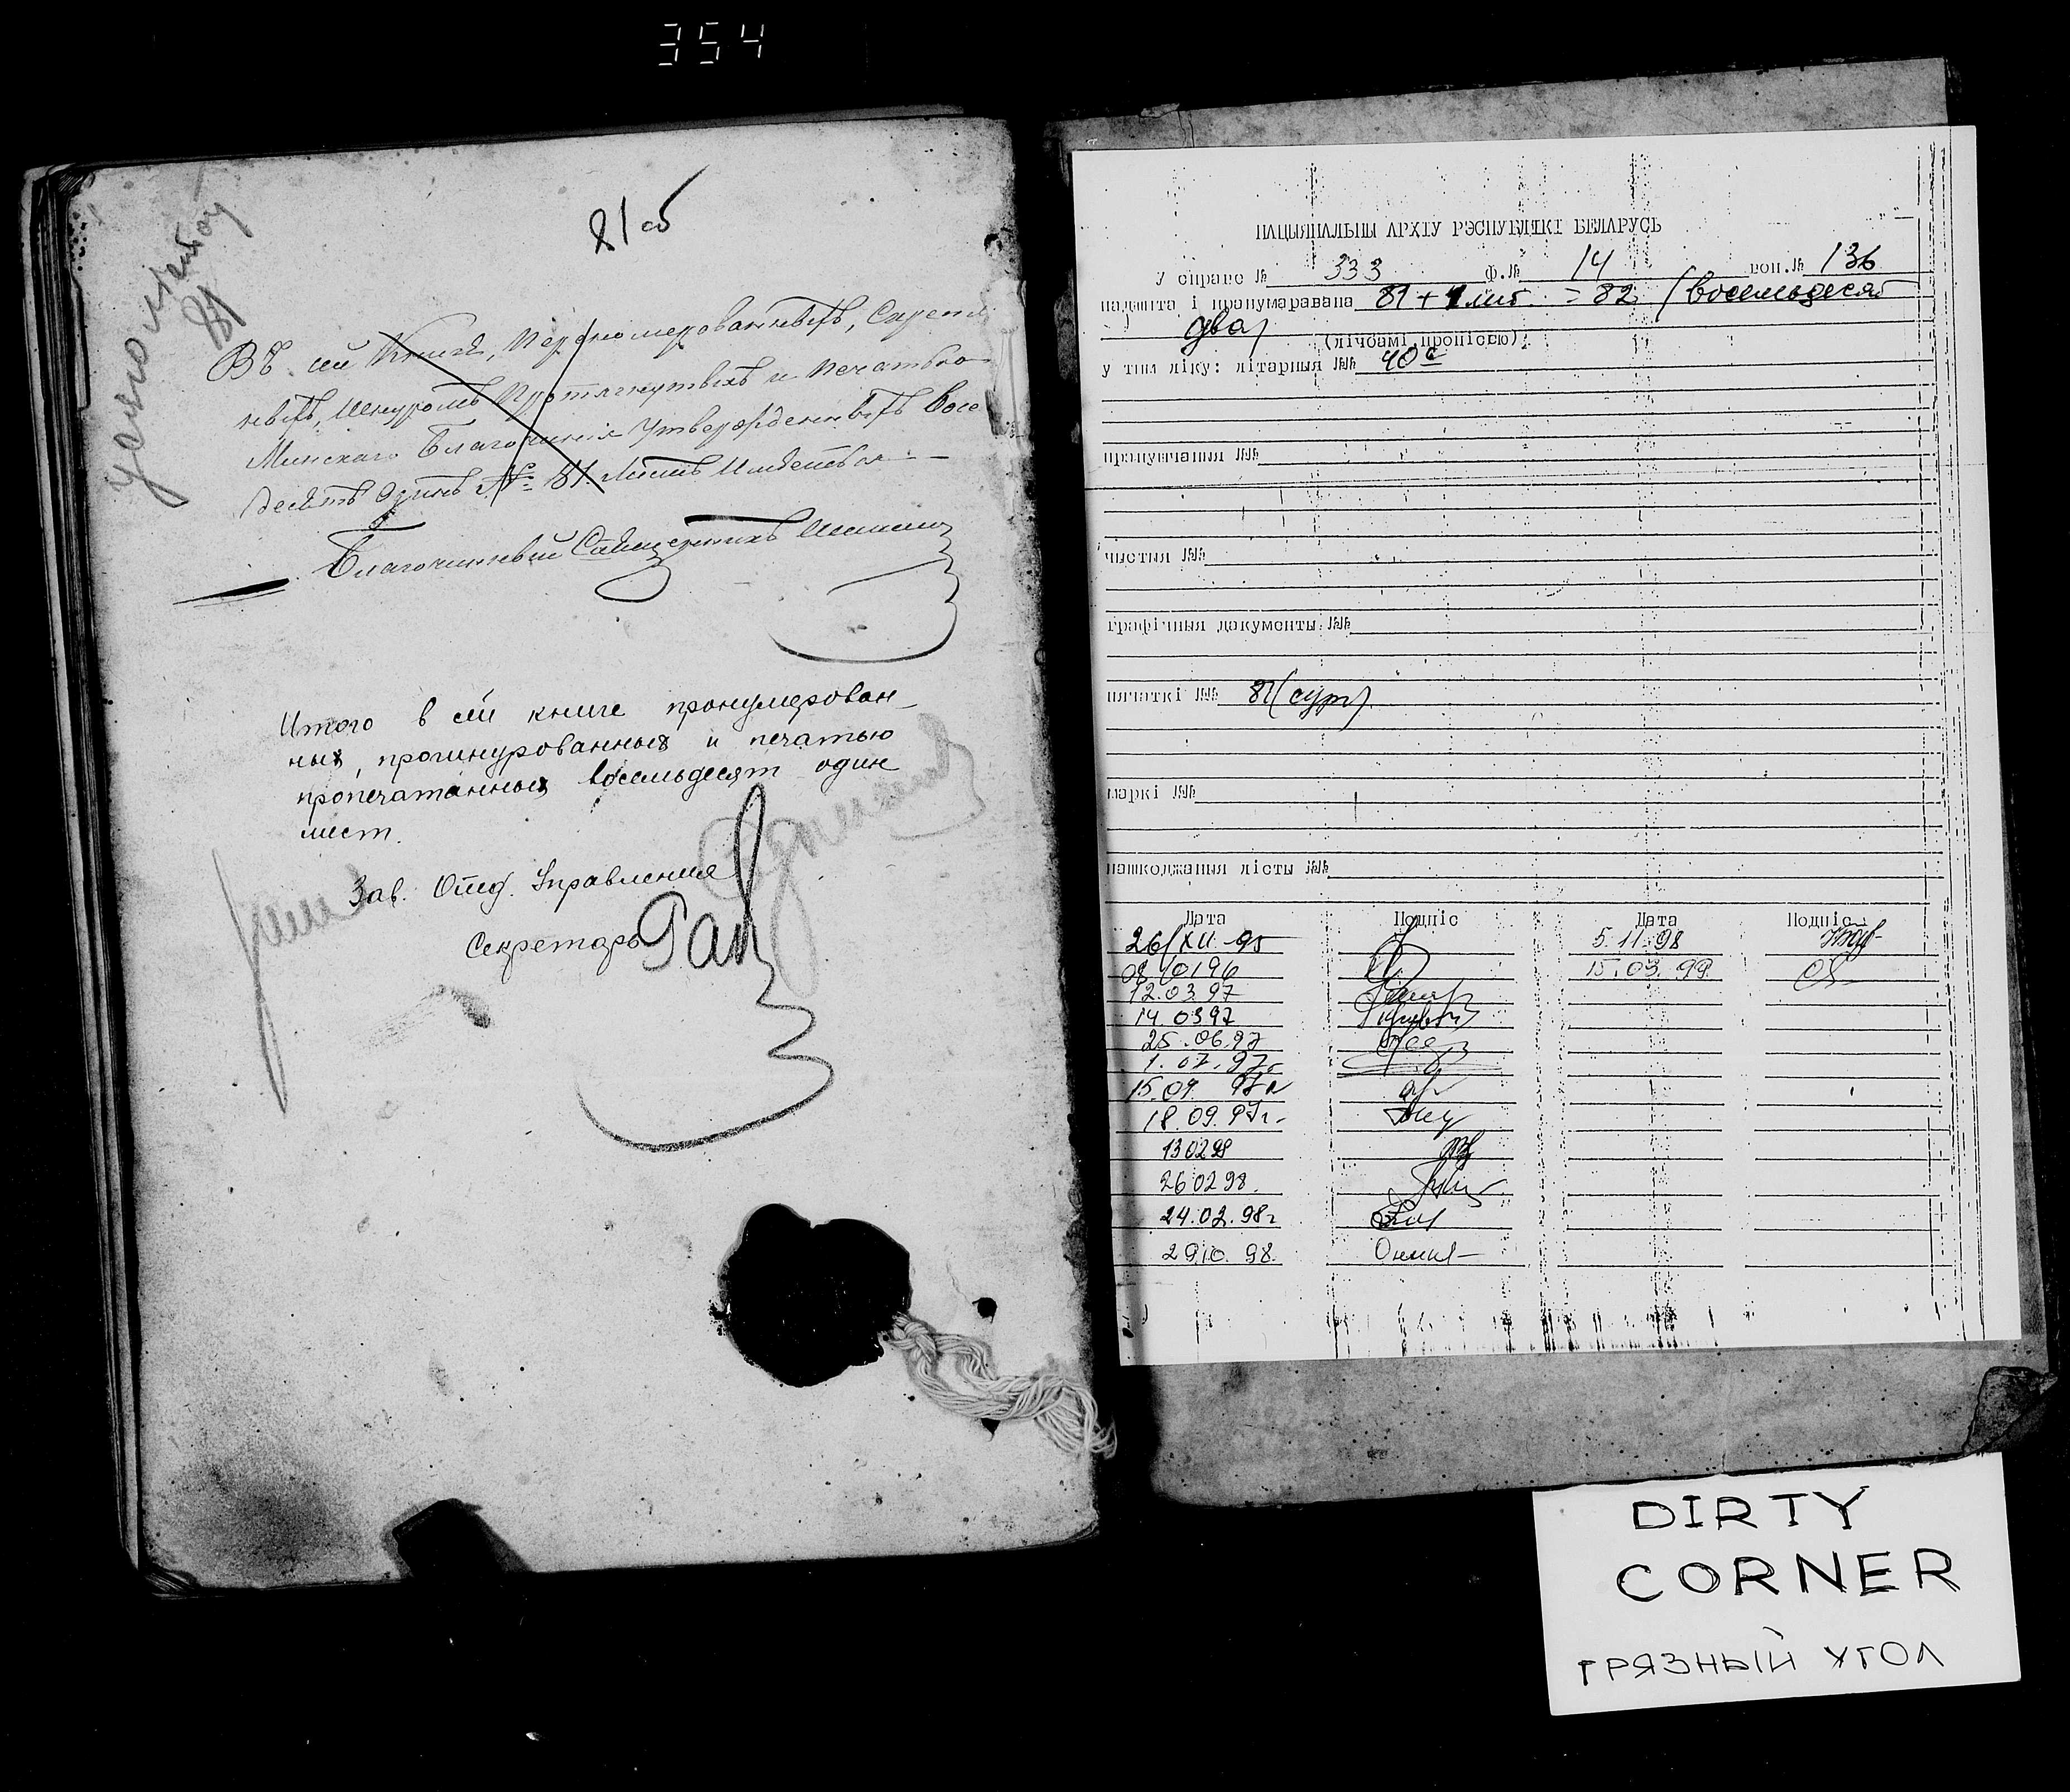 354
81 об
81
Въ сей Книгѣ, Перенумерованныхъ, Скрепле
ныхъ, Шнуромъ Протянутыхъ и Печатью
Минскаго Благочинія Утвержденныхъ Восе
десятъ Одинъ № 81 Листъ Имѣется
Благочинный Священникъ
Итого в сей книге пронумерован-
ных, прошнурованных и печатью
пропечатанных восемьдесят один
лист.
Зав. Отд. Управления
Секретарь
НАЦЫЯНАЛЬНЫ АРХІЎ РЭСПУБЛІКІ БЕЛАРУСЬ
У справе № 333 ф.№ 14 воп.№ 136
падшыта і пранумаравана 81 + 1 лит = 82 (восемьдесят
два)
(лічбамі, пропіссю)
у тым ліку: літарныя №№ 40с
прапушчаныя №№
чыстыя №№
графічныя дакументы №№
пячаткі №№ 81 (сург)
маркі №№
пашкоджаныя лісты №№
Дата Подпіс Дата Подпіс
26/XII-95 5.11.98
08/0196 15.03.99
12.03.97
14.0397
25.06.97
1.07.97г
15.09.97г
18.09.97г.
130298
260298.
24.02.98г
2910.98.
DIRTY
CORNER
ГРЯЗНЫЙ УГОЛ